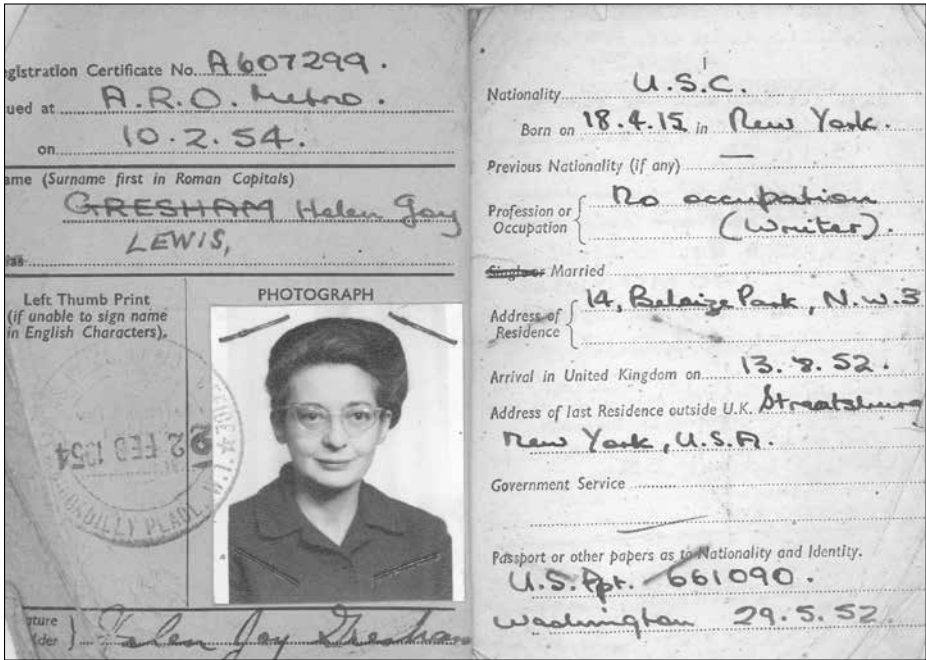 egistration Certificate No. A607299.
ued at A.R.O. Metro.
on 10.2.54.
ame (Surname first in Roman Capitals)
GRESHAM Helen Joy
LEWIS,
ias
Left Thumb Print
(if unable to sign name
in English Characters).
PHOTOGRAPH
2 FEB 1954
DILLY PLACE, W.1
ature
lder } Helen Joy Gresham
Nationality U.S.C.
Born on 18.4.15 in New York.
Previous Nationality (if any) —
Profession or Occupation { No occupation
(Writer).
Single or Married
Address of Residence { 14, Belsize Park, N.W.3
Arrival in United Kingdom on 13.8.52.
Address of last Residence outside U.K. Straatsburg
New York, U.S.A.
Government Service
Passport or other papers as to Nationality and Identity.
U.S. Ppt. 661090.
Washington 29.5.52.